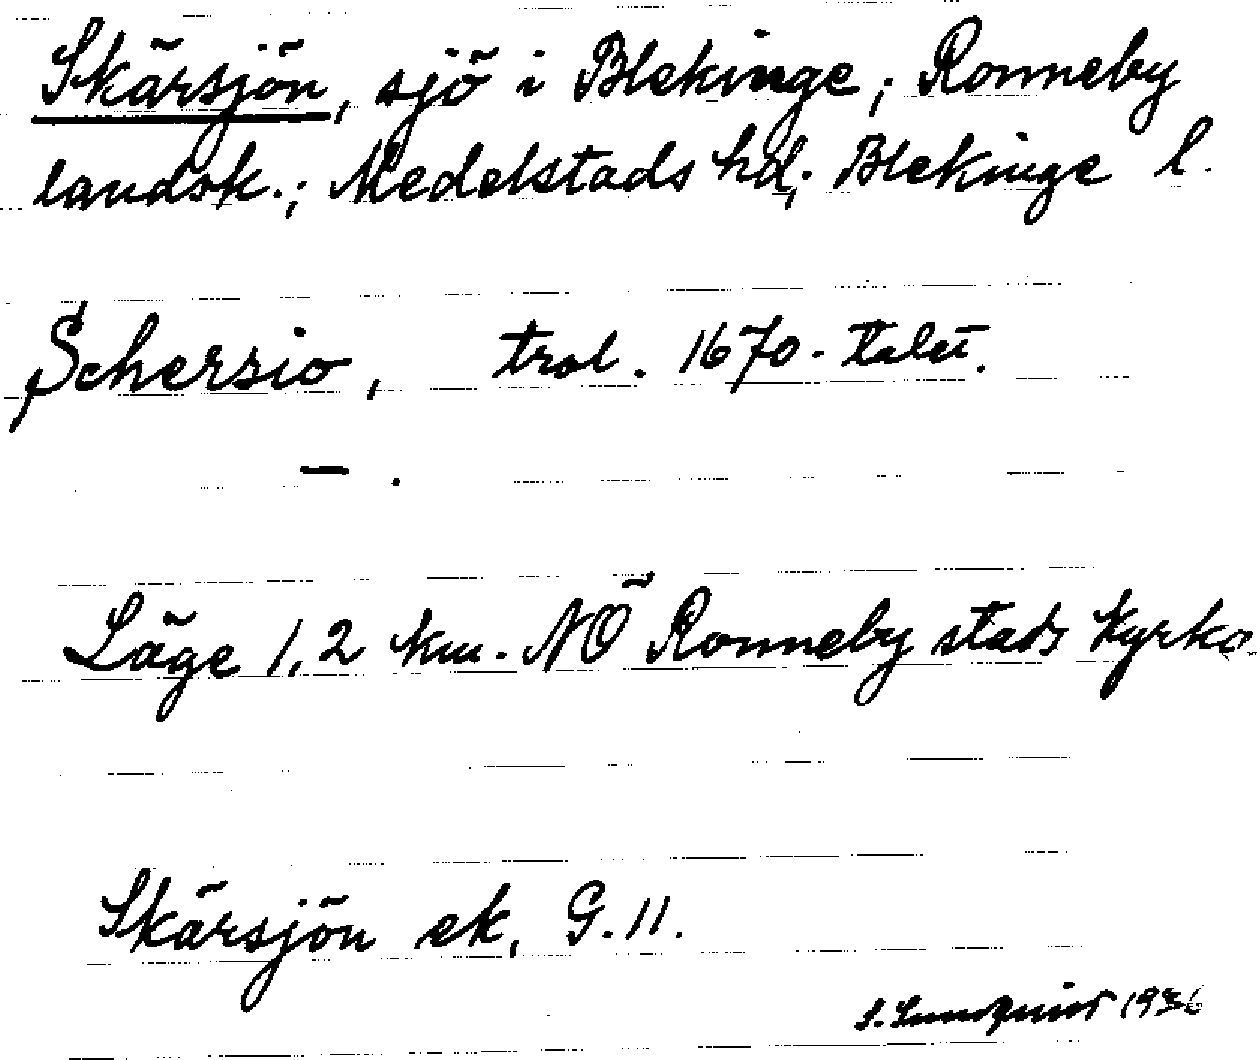 Skärsjön, sjö i Blekinge; Ronneby
landsk.; Medelstads hd; Blekinge l.
Schersio, trol. 1670-talet.
— .
Läge 1,2 km. NÖ Ronneby stads kyrka
Skärsjön ek, G.11.
S. Lundquist 1936